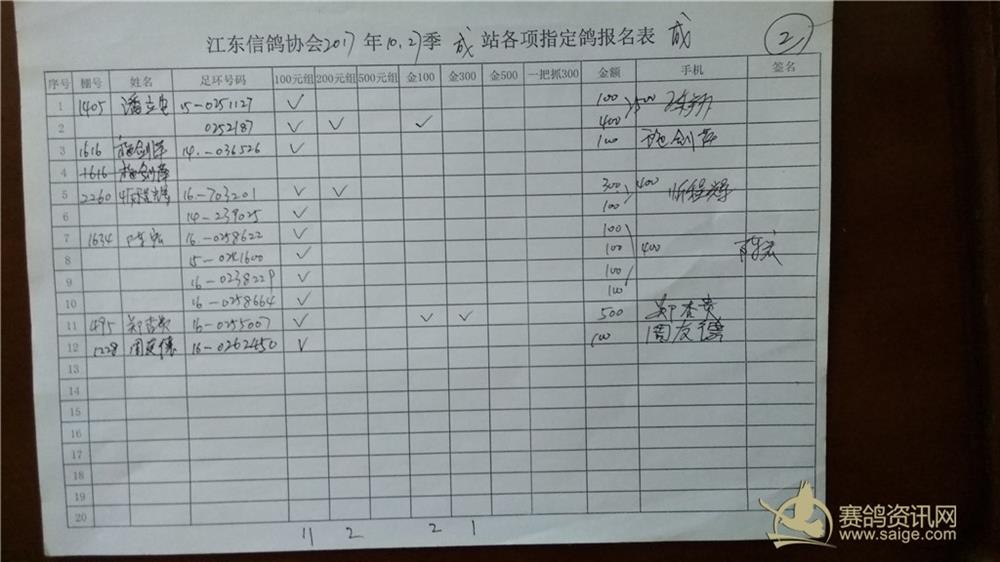 江东信鸽协会2017年10.27季 成 站各项指定鸽报名表 成 2
序号 棚号 姓名 足环号码 100元组 200元组 500元组 金100 金300 金500 一把抓300 金额 手机 签名
1 1405 15-0251127 ✓ 100 500
2 0252187 ✓ ✓ ✓ 400
3 1616 施剑萍 14.-036526 ✓ 100 施剑萍
4 1616 施剑萍
5 2260 16-703201 ✓ ✓ 300 400
6 14-239025 ✓ 100
7 1634 陈宏 16-0258622 ✓ 100
8 15-0241600 ✓ 100 400 陈宏
9 16-0238229 ✓ 100
10 16-0258664 ✓ 100
11 495 郑杏贵 16-0255007 ✓ ✓ ✓ 500 郑杏贵
12 1228 周友德 16-0262450 ✓ 100 周友德
13
14
15
16
17
18
19
20
11 2 2 1
赛鸽资讯网
www.saige.com